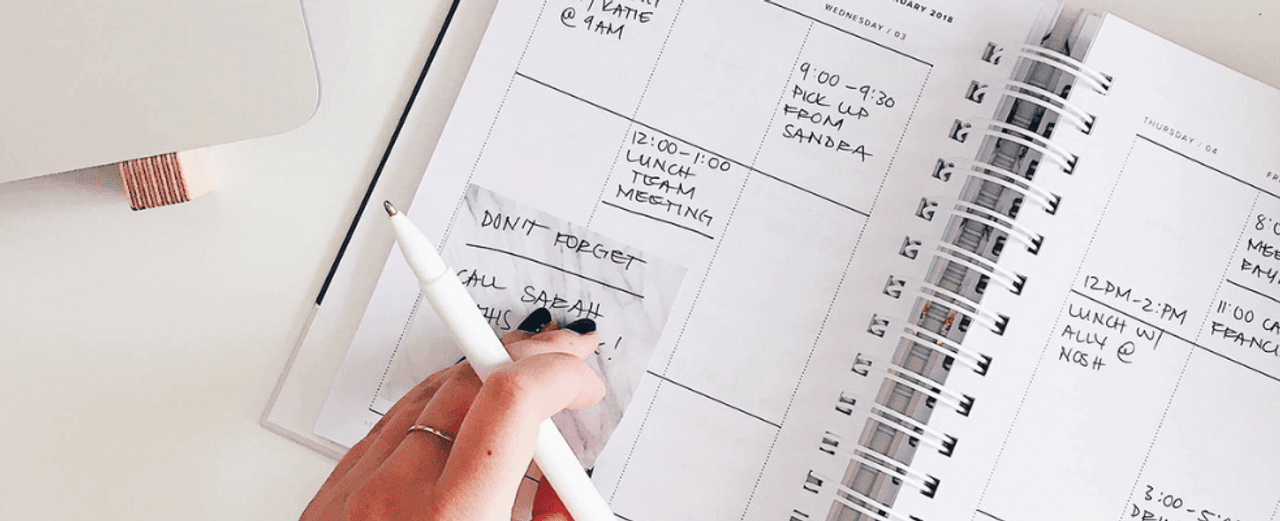 W/ KATIE
@ 9AM
2018
WEDNESDAY / 03
9:00-9:30
PICK UP
FROM
SANDRA
12:00-1:00
LUNCH
TEAM
MEETING
DON'T FORGET
CALL SARAH
THURSDAY / 04
12PM-2:PM
LUNCH W/
ALLY @
NOSH
11:00
3:00-5: